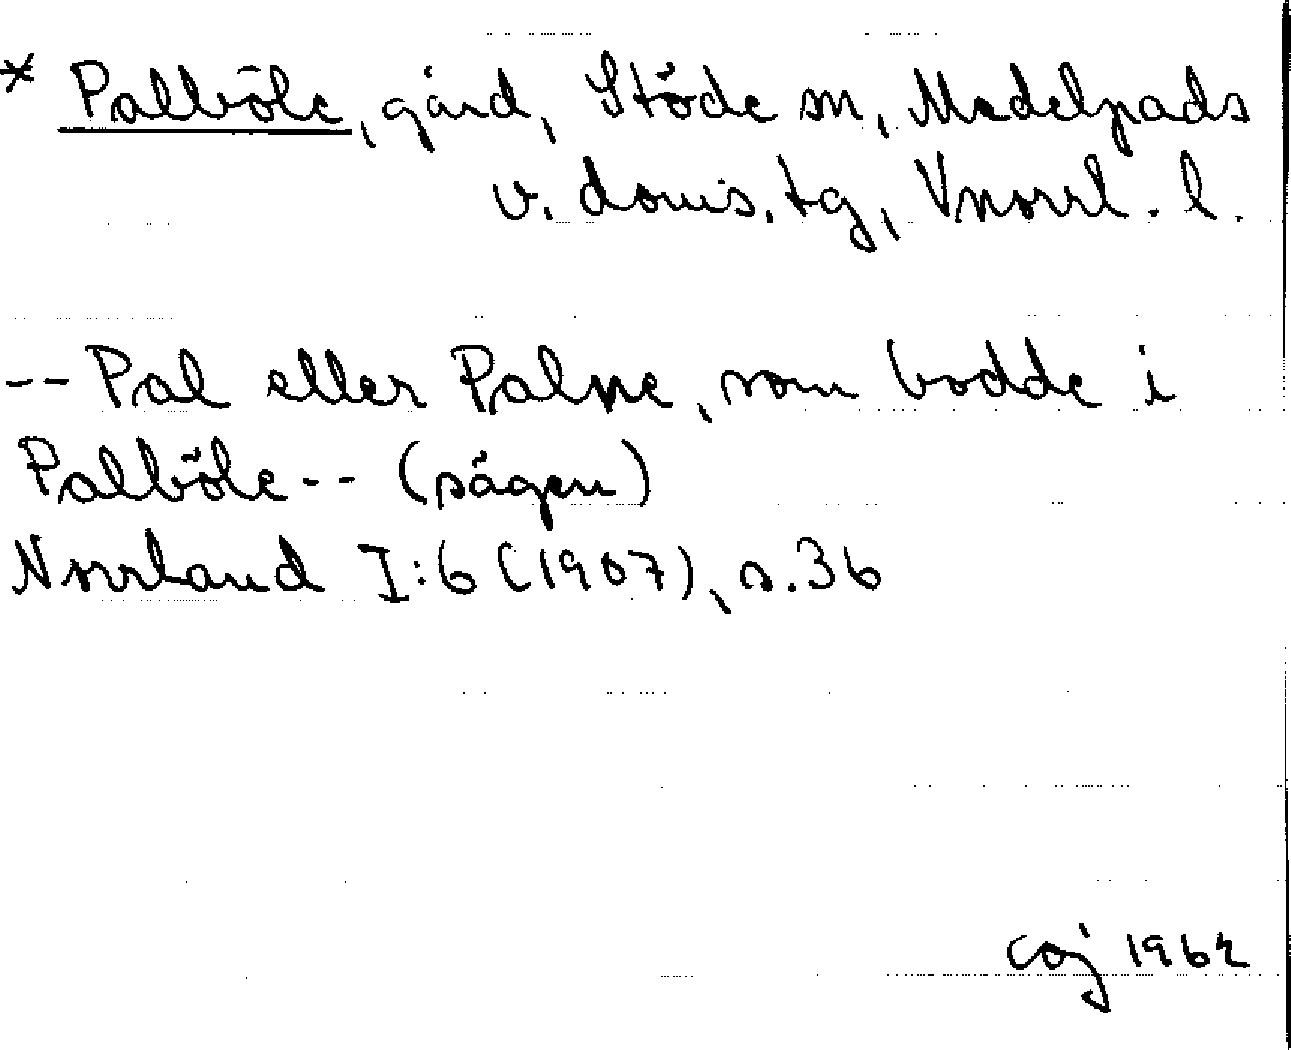 * Palböle, gård, Stöde sn, Medelpads
v. doms. tg, Vnorrl. l.
-- Pal eller Palne, som bodde i
Palböle -- (sägen)
Norrland I:6 (1907), s. 36
coj 1962